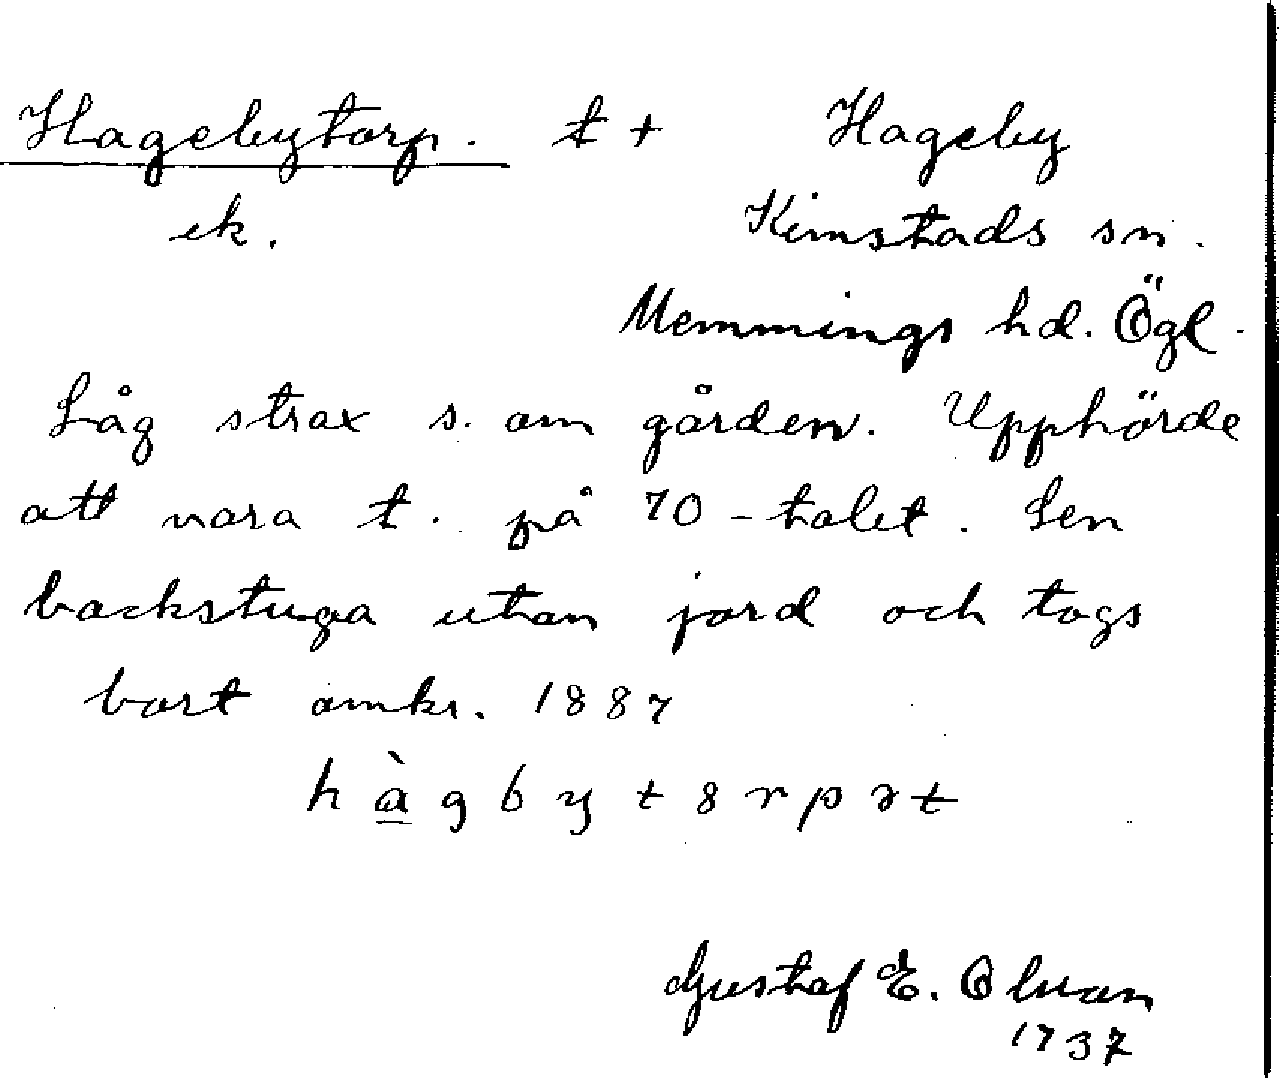 Hagebytorp. t + Hageby
ek. Kimstads sn.
Memmings hd. Ögl.
Låg strax s. om gården. Upphörde
att vara t. på 70-talet. Sen
backstuga utan jord och togs
bort omkr. 1887
hàgbyt8rpət
Gustaf E. Olsson
1937